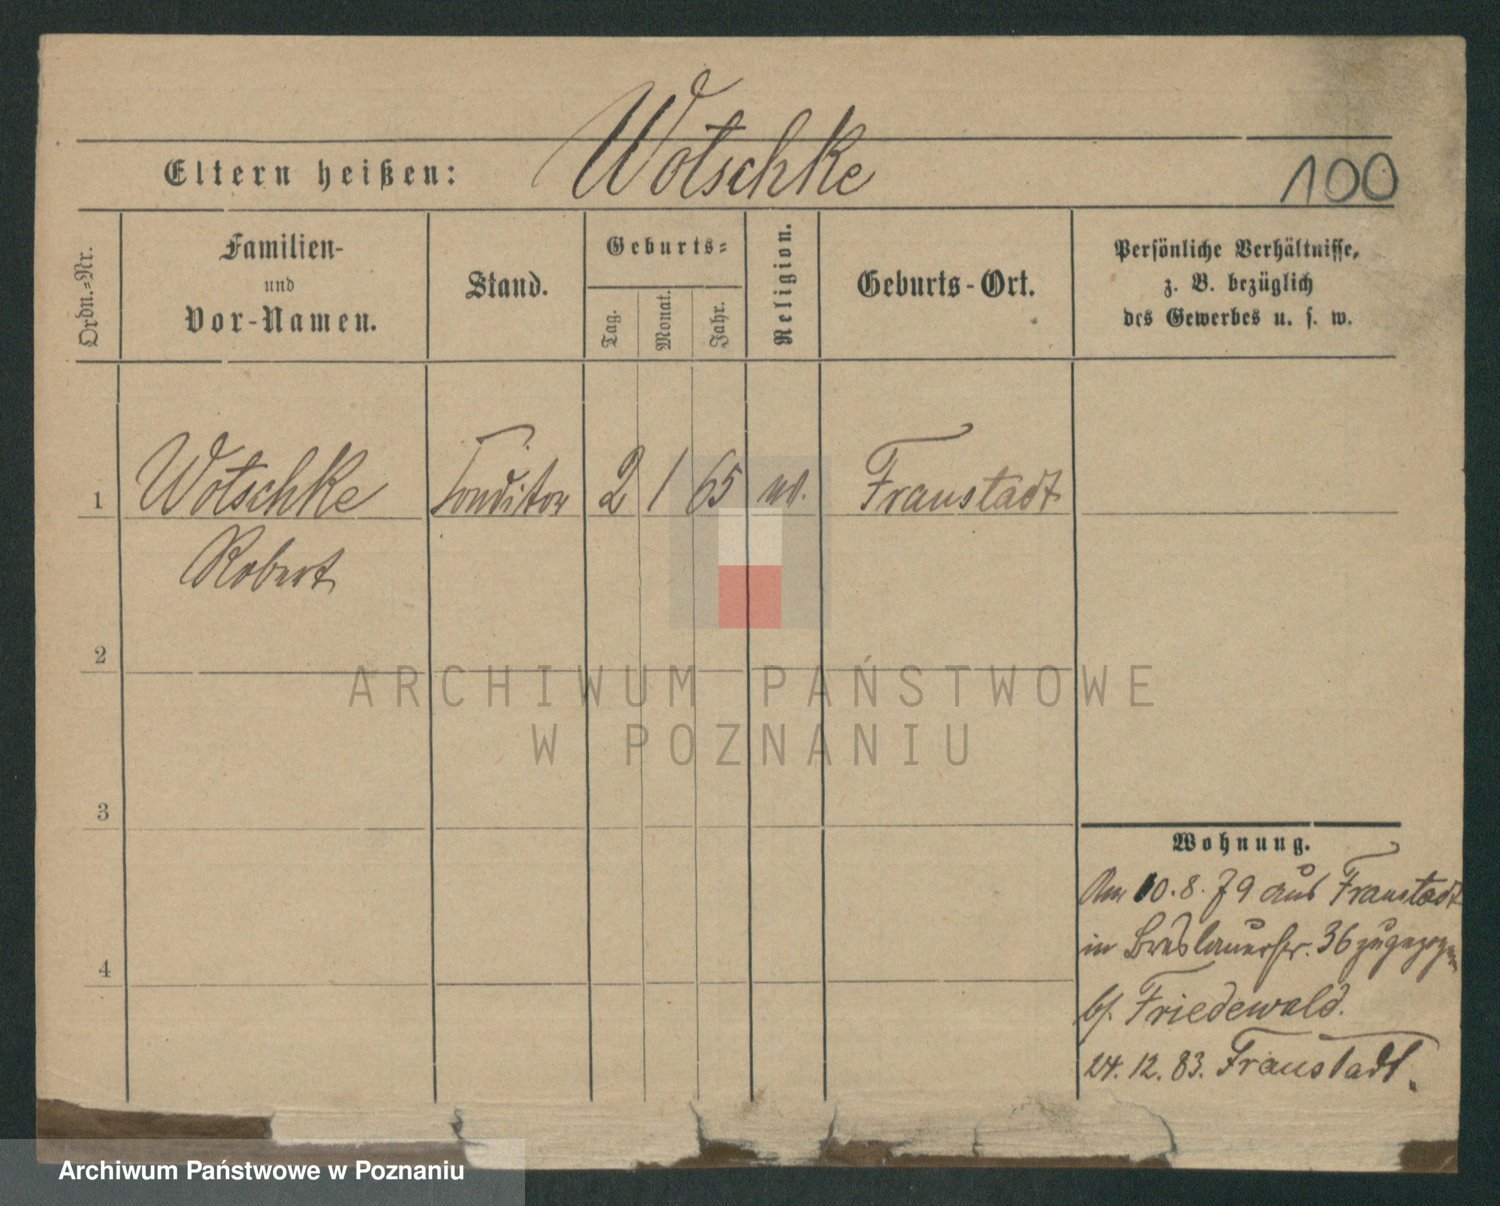 Wotschke
Eltern heißen:
100
Ordn.=Nr.
Familien-
und
Vor-Namen.
Stand.
Geburts=
Tag.
Monat.
Jahr.
Religion.
Geburts-Ort.
Persönliche Verhältnisse,
z. B. bezüglich
des Gewerbes u. s. w.
1 Wotschke Conditor 2 1 65 ev. Fraustadt
Robert
2
3
4
Wohnung.
Am 10.8.79 aus Fraustadt
in Breslauerstr. 36 zugezogen
b/. Friedewald.
24.12.83. Fraustadt.
ARCHIWUM PAŃSTWOWE
W POZNANIU
Archiwum Państwowe w Poznaniu